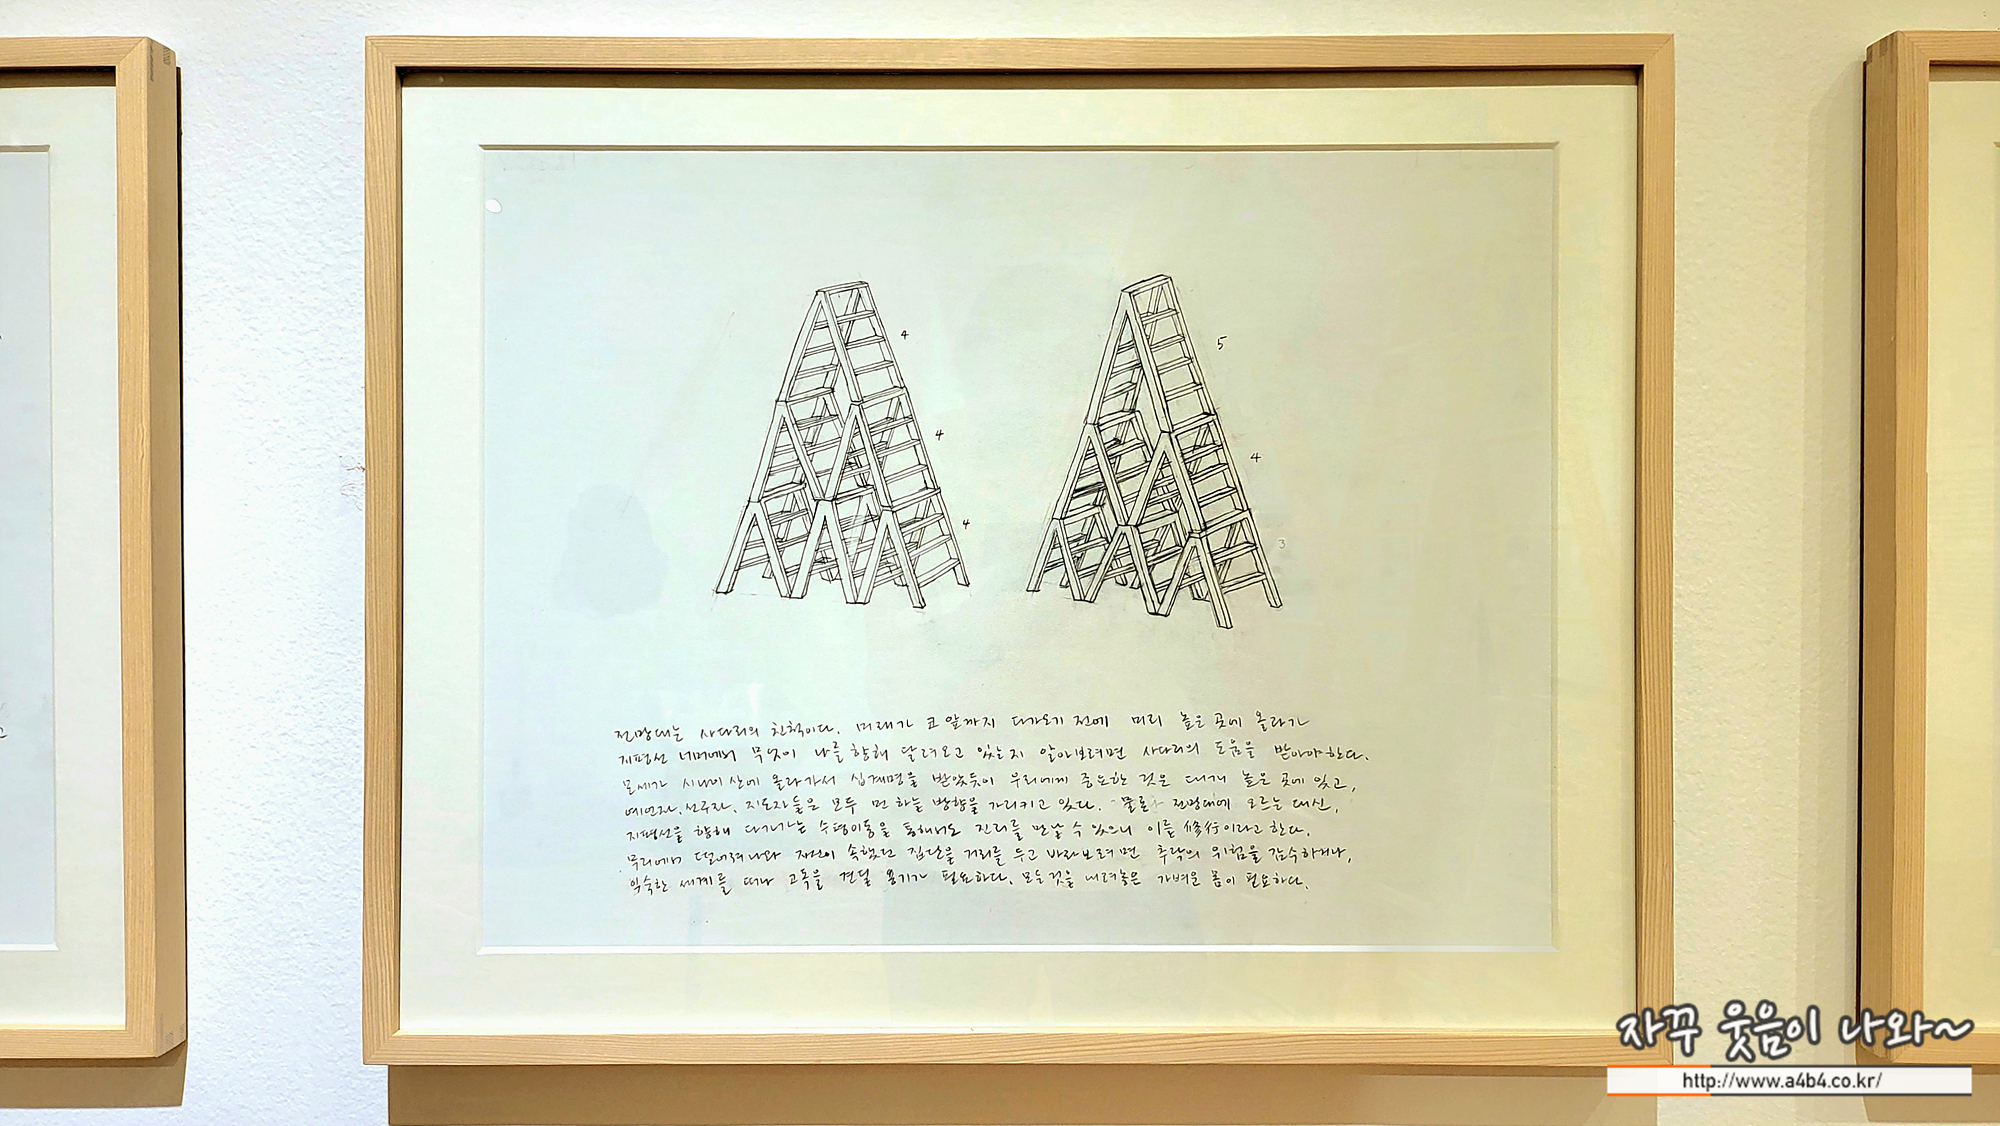 4
5
4
4
4
3
전망대는 사다리의 친척이다. 미래가 코앞까지 다가오기 전에 미리 높은 곳에 올라가
지평선 너머에서 무엇이 나를 향해 달려오고 있는지 알아보려면 사다리의 도움을 받아야한다.
모세가 시나이산에 올라가서 십계명을 받았듯이 우리에게 중요한 것은 대개 높은 곳에 있고,
예언자, 선구자, 지도자들은 모두 먼 하늘 방향을 가리키고 있다. 물론 전망대에 오르는 대신,
지평선을 향해 다가가는 수평이동을 통해서도 진리를 만날 수 있으니 이를 修行이라고 한다.
무리에서 떨어져나와 자신이 속했던 집단을 거리를 두고 바라보려면 추락의 위험을 감수하거나,
익숙한 세계를 떠나 고독을 견딜 용기가 필요하다. 모든것을 내려놓은 가벼운 몸이 필요하다.
자꾸 웃음이 나와~
http://www.a4b4.co.kr/